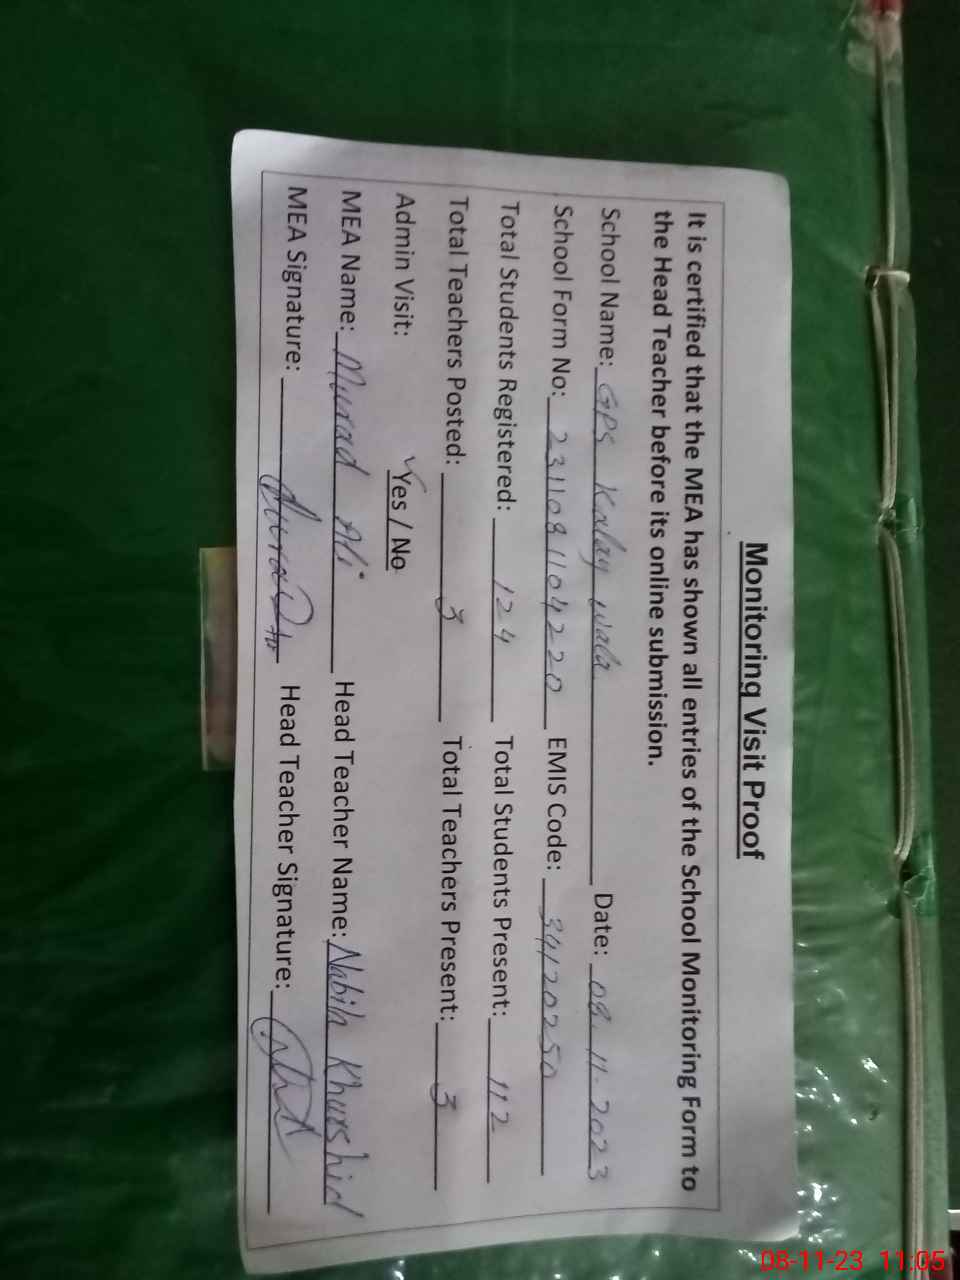 Monitoring Visit Proof
It is certified that the MEA has shown all entries of the School Monitoring Form to
the Head Teacher before its online submission.
School Name: GPS Kalay wala Date: 08-11-2023
School Form No: 2311081104220 EMIS Code: 34120250
Total Students Registered: 124 Total Students Present: 112
Total Teachers Posted: 3 Total Teachers Present: 3
Admin Visit: Yes / No
MEA Name: Murad Ali Head Teacher Name: Nabila Khurshid
MEA Signature: Head Teacher Signature:
08-11-23 11:05